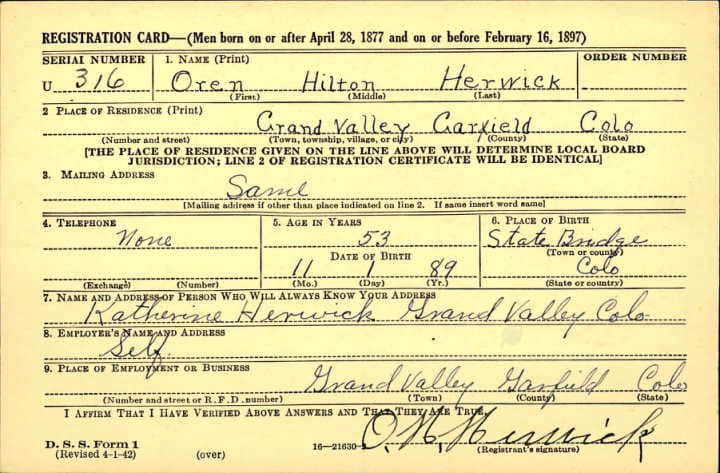 REGISTRATION CARD—(Men born on or after April 28, 1877 and on or before February 16, 1897)
SERIAL NUMBER 1. NAME (Print) ORDER NUMBER
U 316 Oren Hilton Herwick
(First) (Middle) (Last)
2 PLACE OF RESIDENCE (Print)
Grand Valley Garfield Colo
(Number and street) (Town, township, village, or city) (County) (State)
[THE PLACE OF RESIDENCE GIVEN ON THE LINE ABOVE WILL DETERMINE LOCAL BOARD
JURISDICTION; LINE 2 OF REGISTRATION CERTIFICATE WILL BE IDENTICAL]
3. MAILING ADDRESS
Same
[Mailing address if other than place indicated on line 2. If same insert word same]
4. TELEPHONE 5. AGE IN YEARS 6. PLACE OF BIRTH
None 53 State Bridge
(Town or county)
DATE OF BIRTH
11 1 89 Colo
(Exchange) (Number) (Mo.) (Day) (Yr.) (State or country)
7. NAME AND ADDRESS OF PERSON WHO WILL ALWAYS KNOW YOUR ADDRESS
Katherine Herwick Grand Valley Colo
8. EMPLOYER'S NAME AND ADDRESS
Self.
9. PLACE OF EMPLOYMENT OR BUSINESS
Grand Valley Garfield Colo
(Number and street or R. F. D. number) (Town) (County) (State)
I AFFIRM THAT I HAVE VERIFIED ABOVE ANSWERS AND THAT THEY ARE TRUE.
O. H. Herwick
D. S. S. Form 1 16—21630-2 (Registrant's signature)
(Revised 4-1-42) (over)